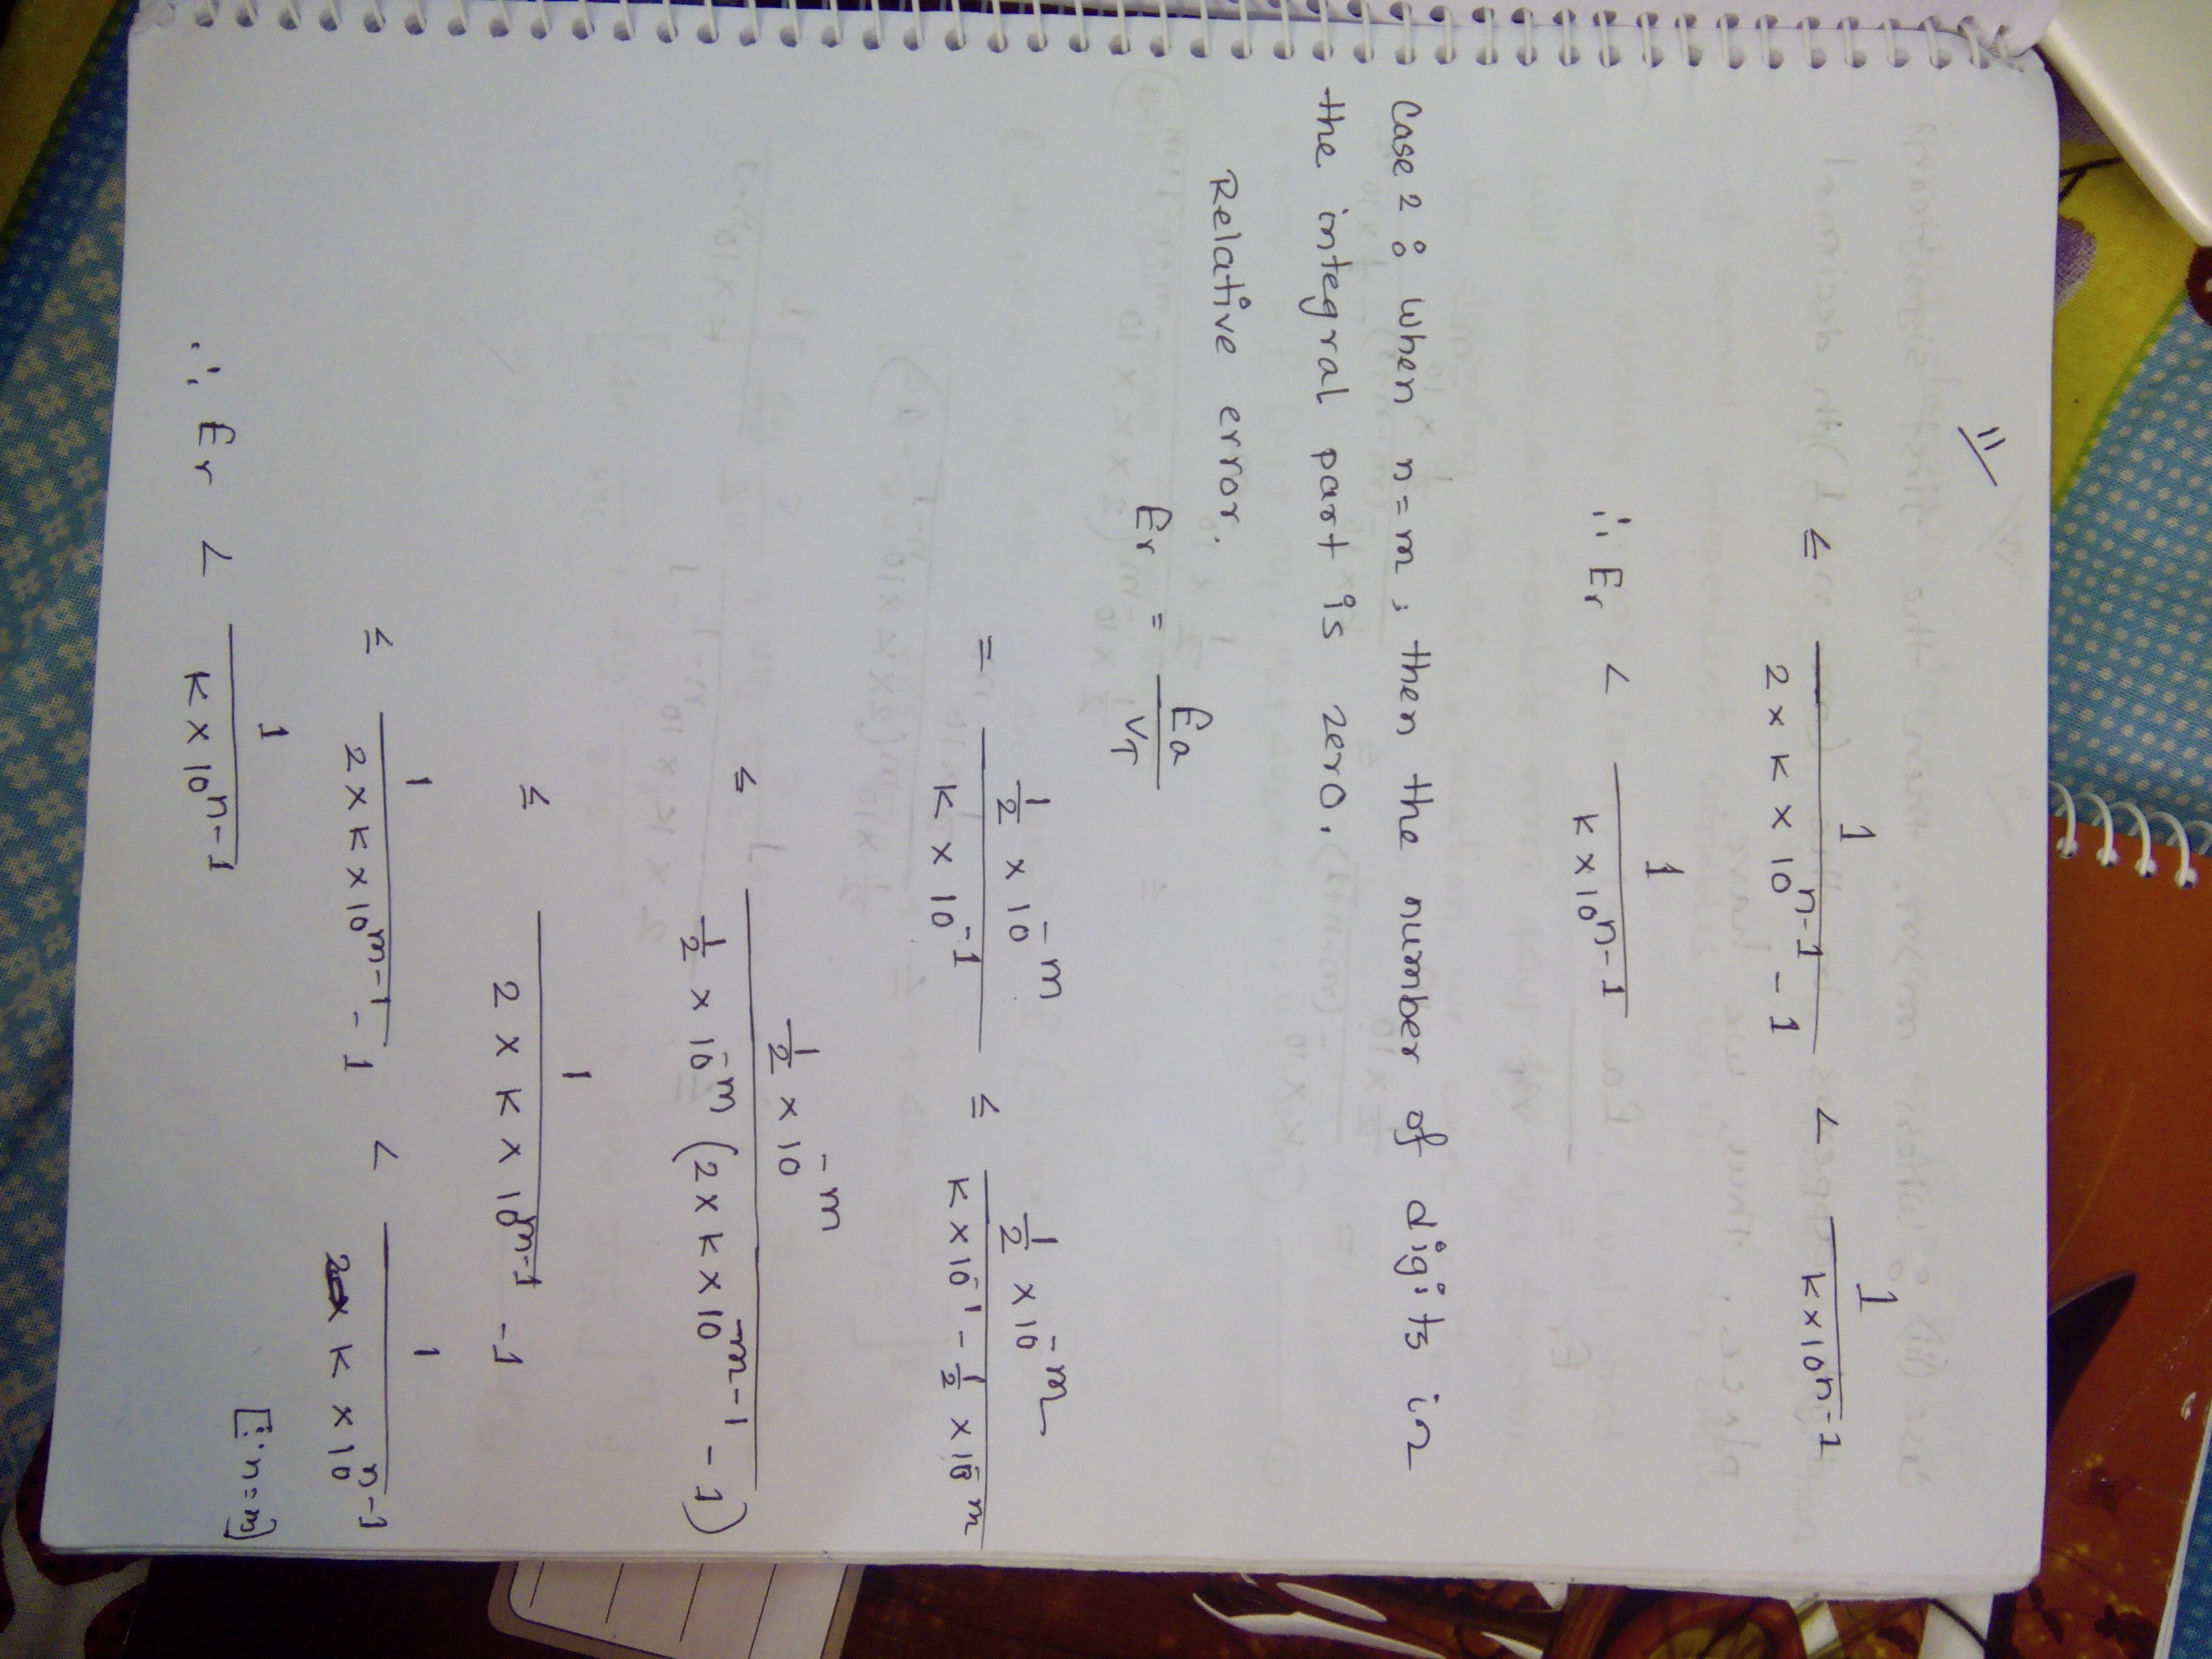 11
≤ 1 / (2 × K × 10^(n-1) - 1) < 1 / (K × 10^(n-1))
∴ Er < 1 / (K × 10^(n-1))
Case 2 : When n = m ; then the number of digits in
the integral part is zero.
Relative error.
Er = Ea / VT
= (1/2 × 10^-m) / (K × 10^-1) ≤ (1/2 × 10^-m) / (K × 10^-1 - 1/2 × 10^-m)
≤ (1/2 × 10^-m) / (1/2 × 10^-m (2 × K × 10^(m-1) - 1))
≤ 1 / (2 × K × 10^(m-1) - 1)
≤ 1 / (2 × K × 10^(m-1) - 1) < 1 / (K × 10^(n-1))
[∵ n = m]
∴ Er < 1 / (K × 10^(n-1))